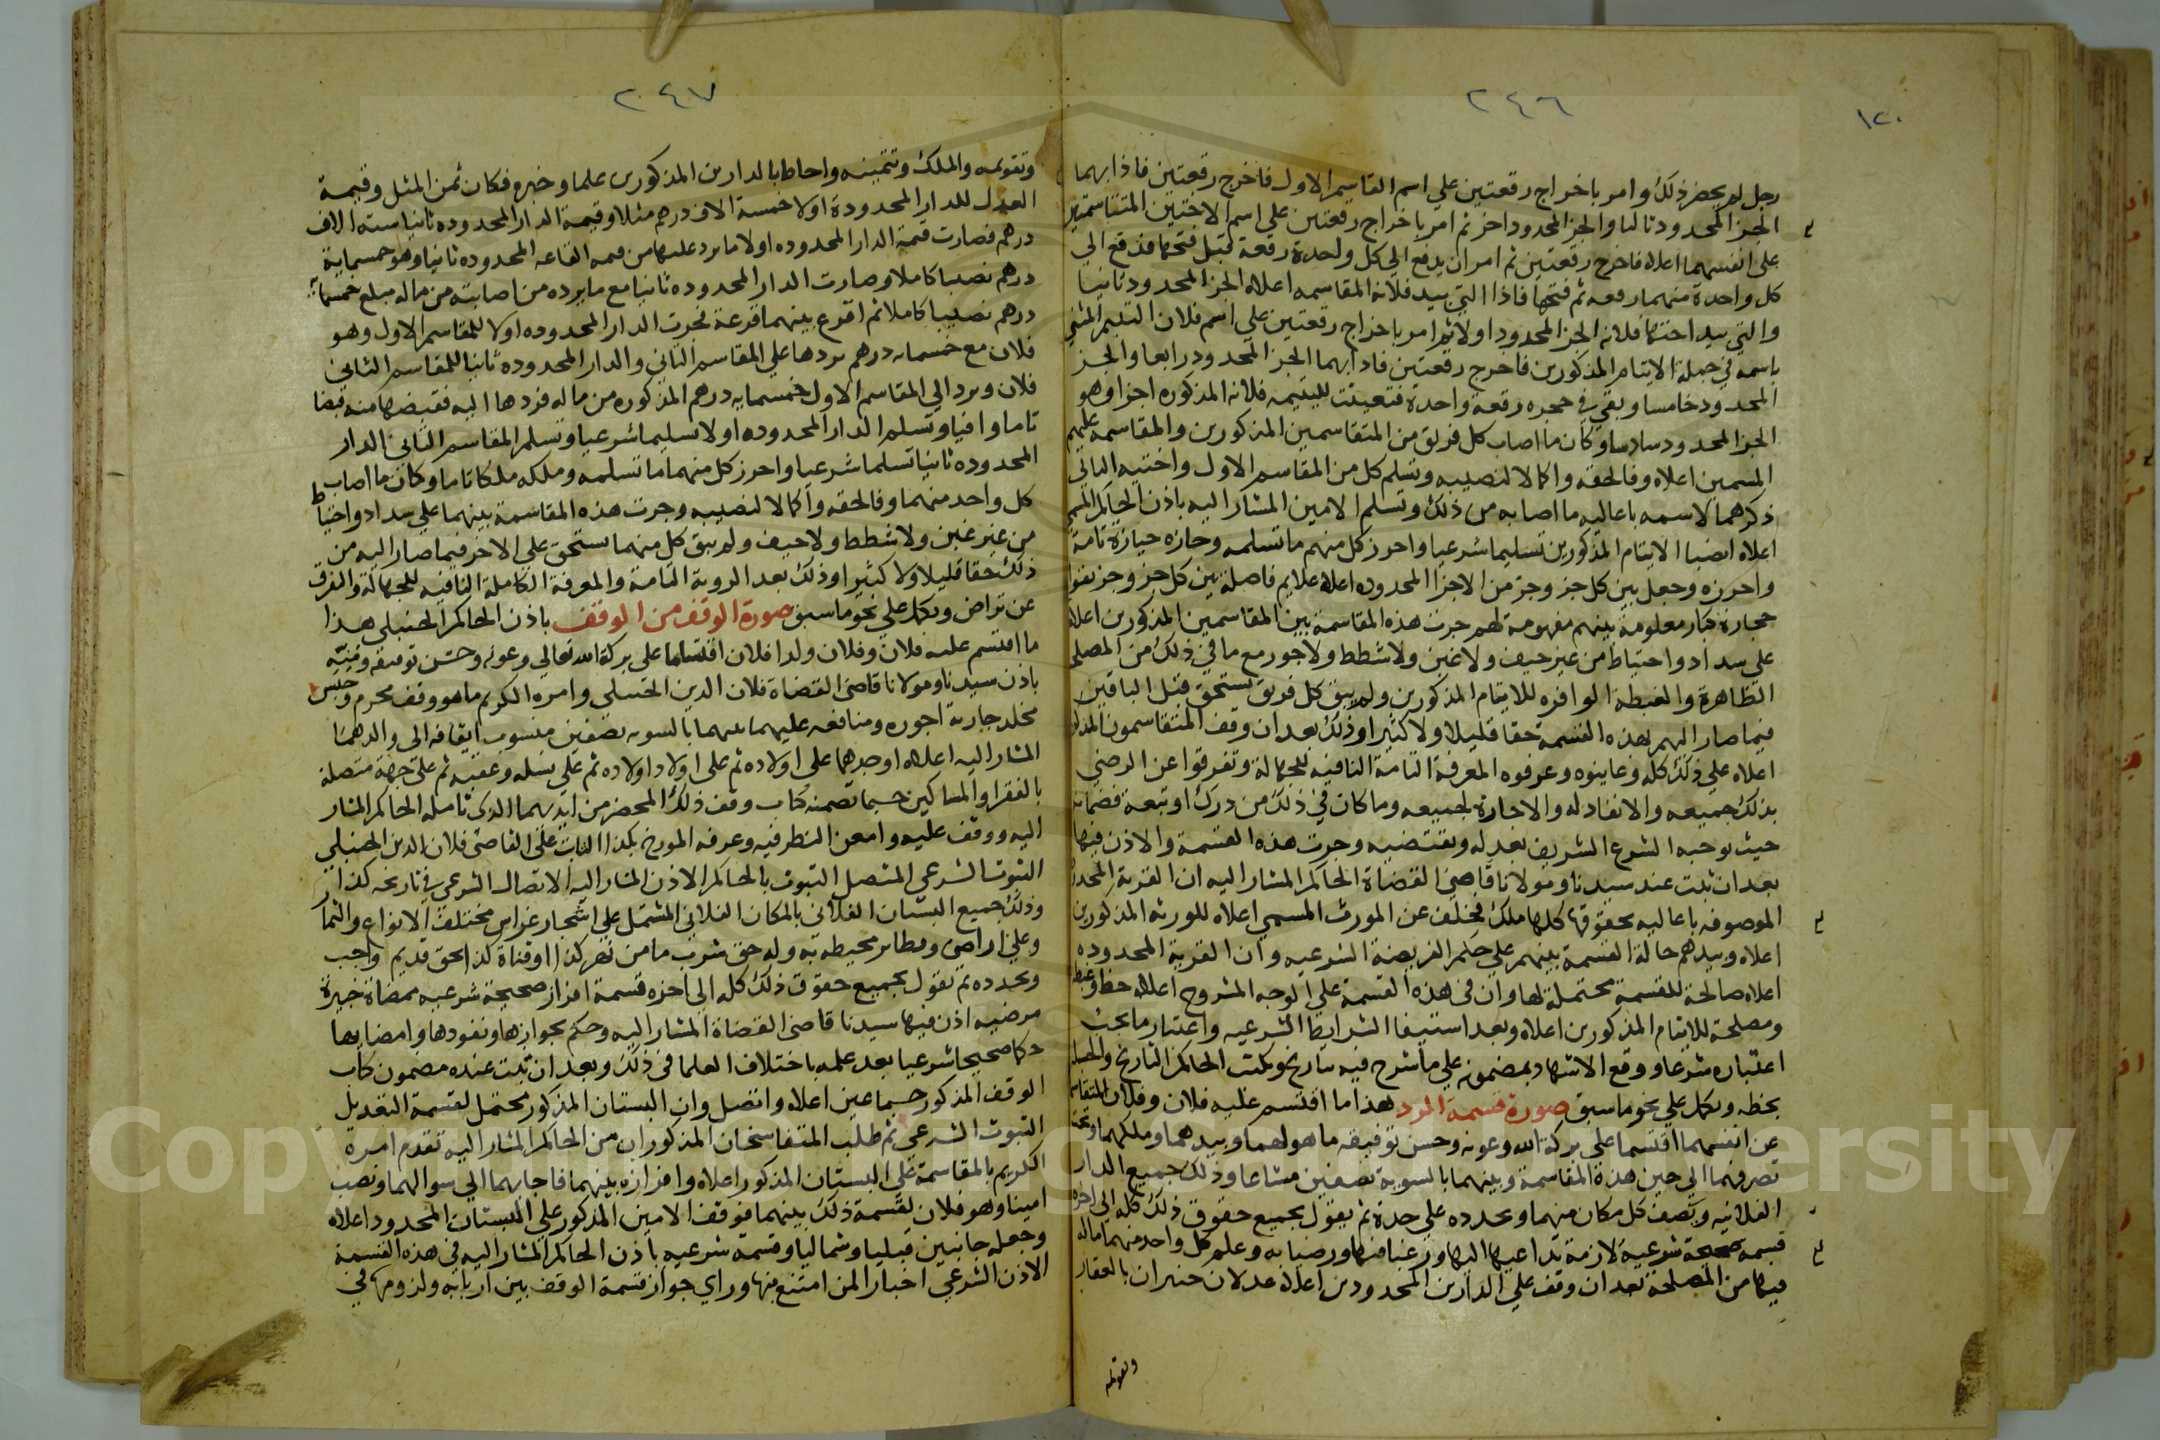 ١٢٠
٢٤٦
رجل لم يحضر ذلك وامر باخراج رقعتين علي اسم القاسم الاول فاخرج رقعتين فاذا بهما
الجز المحدود ثالثا والجز المحدود اخر ثم امر باخراج رقعتين علي اسم الاختين المتقاسمتين
علي انفسهما اعلاه فاخرج رقعتين ثم امر ان يدفع الي كل واحدة رقعة قبل فتحها فدفع الي
كل واحدة منهما رقعه ثم فتحها فاذا التي بيد فلانه المقاسمه اعلاه الجز المحدود ثانيا
والتي بيد اختها فلانه الجز المحدود اولا ثم امر باخراج رقعتين علي اسم فلان اليتيم المثني
باسمه في جملة الايتام المذكورين فاخرج رقعتين فاذا بهما الجز المحدود رابعا والجز
المحدود خامسا وبقي في حجره رقعة واحدة فتعينت لليتيمه فلانه المذكوره اجزا وهو
الجز المحدود سادسا وكان ما اصاب كل فريق من المتقاسمين المذكورين والمقاسمه عليهم
المسمين اعلاه وفا لحقه واكمالا لنصيبه وتسلم كل من المقاسم الاول واختيه التالي
ذكرهما لاسمه باعاليه ما اصابه من ذلك وتسلم الامين المشار اليه باذن الحاكم المسمي
اعلاه انصبا الايتام المذكورين تسليما شرعيا واحرز كل منهم ما تسلمه وحازه حيازة تامة
واحرزه وجعل بين كل جز وجز من الاجزا المحدوده اعلاه علايم فاصلة بين كل جز وجز بقوا
حجارة كبار معلومة بينهم مفهومة لهم جرت هذه المقاسمة بين المقاسمين المذكورين اعلاه
علي سداد واحتياط من غير حيف ولا غبن ولا شطط ولا جور مع ما في ذلك من المصلحة
الظاهرة والغبطة الوافره للايتام المذكورين ولم يبق كل فريق يستحق قبل الباقين
فيما صار اليهم بهذه القسمة حقا قليلا ولا كثيرا وذلك بعد ان وقف المتقاسمون المذكورون
اعلاه علي ذلك كله وعاينوه وعرفوه المعرفة التامة النافيه للجهالة وتفرقوا عن الرضي
بذلك جميعه والانفاد له والاجازة لجميعه وما كان في ذلك من درك او تبعة فضمانه
حيث يوجبه الشرع الشريف بعدله ويقتضيه وجرت هذه القسمة والاذن فيها
بعد ان ثبت عند سيدنا ومولانا قاضي القضاة الحاكم المشار اليه ان القرية المحدودة
الموصوفه باعاليه بحقوقها كلها ملك مخلف عن المورث المسمي اعلاه للورثه المذكورين
اعلاه وبيدهم حالة القسمة بينهم علي حكم الفريضة الشرعيه وان القرية المحدوده
اعلاه صالحة للقسمة محتملة لها وان في هذه القسمة علي الوجه المشروح اعلاه حظا وغبطة
ومصلحة للايتام المذكورين اعلاه وبعد استيفا الشرايط الشرعيه واعتبار ما يجب
اعتباره شرعا ووقع الاشهاد بمضمونه علي ما شرح فيه بتاريخ ويكتب الحاكم التاريخ والحسبله
بخطه ويكمل علي نحو ما سبق صورة قسمة الرد هذا ما اقتسم عليه فلان وفلان المتقاسمان
عن انفسهما اقتسما علي بركة الله وعونه وحسن توفيقه ما هو لهما وبيدهما وملكهما وتحت
تصرفهما الي حين هذه المقاسمة وبينهما بالسوية نصفين مشاعا وذلك جميع الدار
الفلانيه ويصف كل مكان منهما ويحدده علي حدة ثم يقول بجميع حقوق ذلك كله الي اخره
قسمه صحيحة شرعية لازمة تداعيا اليها ورغبا فيها ورضيا به وعلم كل واحد منهما ماله
فيها من المصلحة بعد ان وقف علي الدارين المحدودين اعلاه عدلان خبيران بالعقار
وتقويمه
٢٤٧
وتقويمه والملك وتثمينه واحاطا بالدارين المذكورين علما وخبره فكان ثمن المثل وقيمة
العدل للدار المحدودة اولا خمسة الاف درهم مثلا وقيمة الدار المحدوده ثانيا سته الاف
درهم فصارت قيمة الدار المحدوده اولا ما يرد عليها من قيمه القاعه المحدوده ثانيا وهو خمسماية
درهم نصيبا كاملا وصارت الدار المحدوده ثانيا مع ما يرده من اصابته من ماله مبلغ خمسماية
درهم نصيبا كاملا ثم اقرع بينهما قرعة فجرت الدار المحدوده اولا للمقاسم الاول وهو
فلان مع خمسمايه درهم يردها علي المقاسم الثاني والدار المحدوده ثانيا للمقاسم الثاني
فلان ويرد الي المقاسم الاول خمسمايه درهم المذكوره من ماله فردها اليه فقبضها منه قبضا
تاما وافيا وتسلم الدار المحدوده اولا تسليما شرعيا وتسلم المقاسم الثاني الدار
المحدوده ثانيا تسلما شرعيا واحرز كل منهما ما تسلمه وملكه ملكا تاما وكان ما اصاب
كل واحد منهما وفا لحقه واكمالا لنصيبه وجرت هذه المقاسمة بينهما علي سداد واحتياط
من غير غبن ولا شطط ولا حيف ولم يبق كل منهما يستحق علي الاخر فيما صار اليه من
ذلك حقا قليلا ولا كثيرا وذلك بعد الروية التامة والمعرفة الكاملة النافيه للجهالة والتفرق
عن تراض ويكمل علي نحو ما سبق صورة الوقف من الوقف باذن الحاكم الحنبلي هذا
ما اقتسم عليه فلان وفلان ولدا فلان اقتسما علي بركة الله تعالي وعونه وحسن توفيقه ومنه
باذن سيدنا ومولانا قاضي القضاة فلان الدين الحنبلي وامره الكريم ما هو وقف محرم وحبس
مخلد جارية اجوره ومنافعه عليهما بينهما بالسويه نصفين منسوب ايقافه الي والدهما
المشار اليه اعلاه او جدهما علي اولاده ثم علي اولاد اولاده ثم علي نسله وعقبه ثم علي جهة متصلة
بالفقرا والمساكين حسبما تضمنه كتاب وقف ذلك المحضر من ايديهما الذي تامله الحاكم المشار
اليه ووقف عليه وامعن النظر فيه وعرفه المورخ بكذا الثابت علي القاضي فلان الدين الحنبلي
الثبوت الشرعي المتصل الثبوت بالحاكم الاذن المشار اليه الاتصال الشرعي في تاريخه كذا
وذلك جميع البستان الفلاني بالمكان الفلاني المشتمل علي اشجار غراس مختلفة الانواع والثمار
وعلي اراضي ومطاير محيطه به وله حق شرب ما من نهر كذا او قناة كذا بحق قديم واجب
ويحدده ثم يقول بجميع حقوق ذلك كله الي اخره قسمة افراز صحيحة شرعيه ممضاة خيرة
مرضيه اذن فيها سيدنا قاضي القضاة المشار اليه وحكم بجوازها ونفوذها وامضايها
حكما صحيحا شرعيا بعد علمه باختلاف العلما في ذلك وبعد ان ثبت عنده مضمون كتاب
الوقف المذكور حسبما عين اعلاه واتصل وان البستان المذكور محتمل لقسمة التعديل
الثبوت الشرعي ثم طلب المتقاسخان المذكوران من الحاكم المشار اليه تقدم امره
الكريم بالمقاسمة علي البستان المذكور اعلاه وافرازه بينهما فاجابهما الي سوالهما ونصب
امينا وهو فلان لقسمة ذلك بينهما فوقف الامين المذكور علي البستان المحدود اعلاه
وجعله جانبين قبليا وشماليا وقسمه قسمة شرعيه باذن الحاكم المشار اليه في هذه القسمة
الاذن الشرعي اجبارا لمن امتنع منها وراي جواز قسمة الوقف بين اربابه ولزومها في